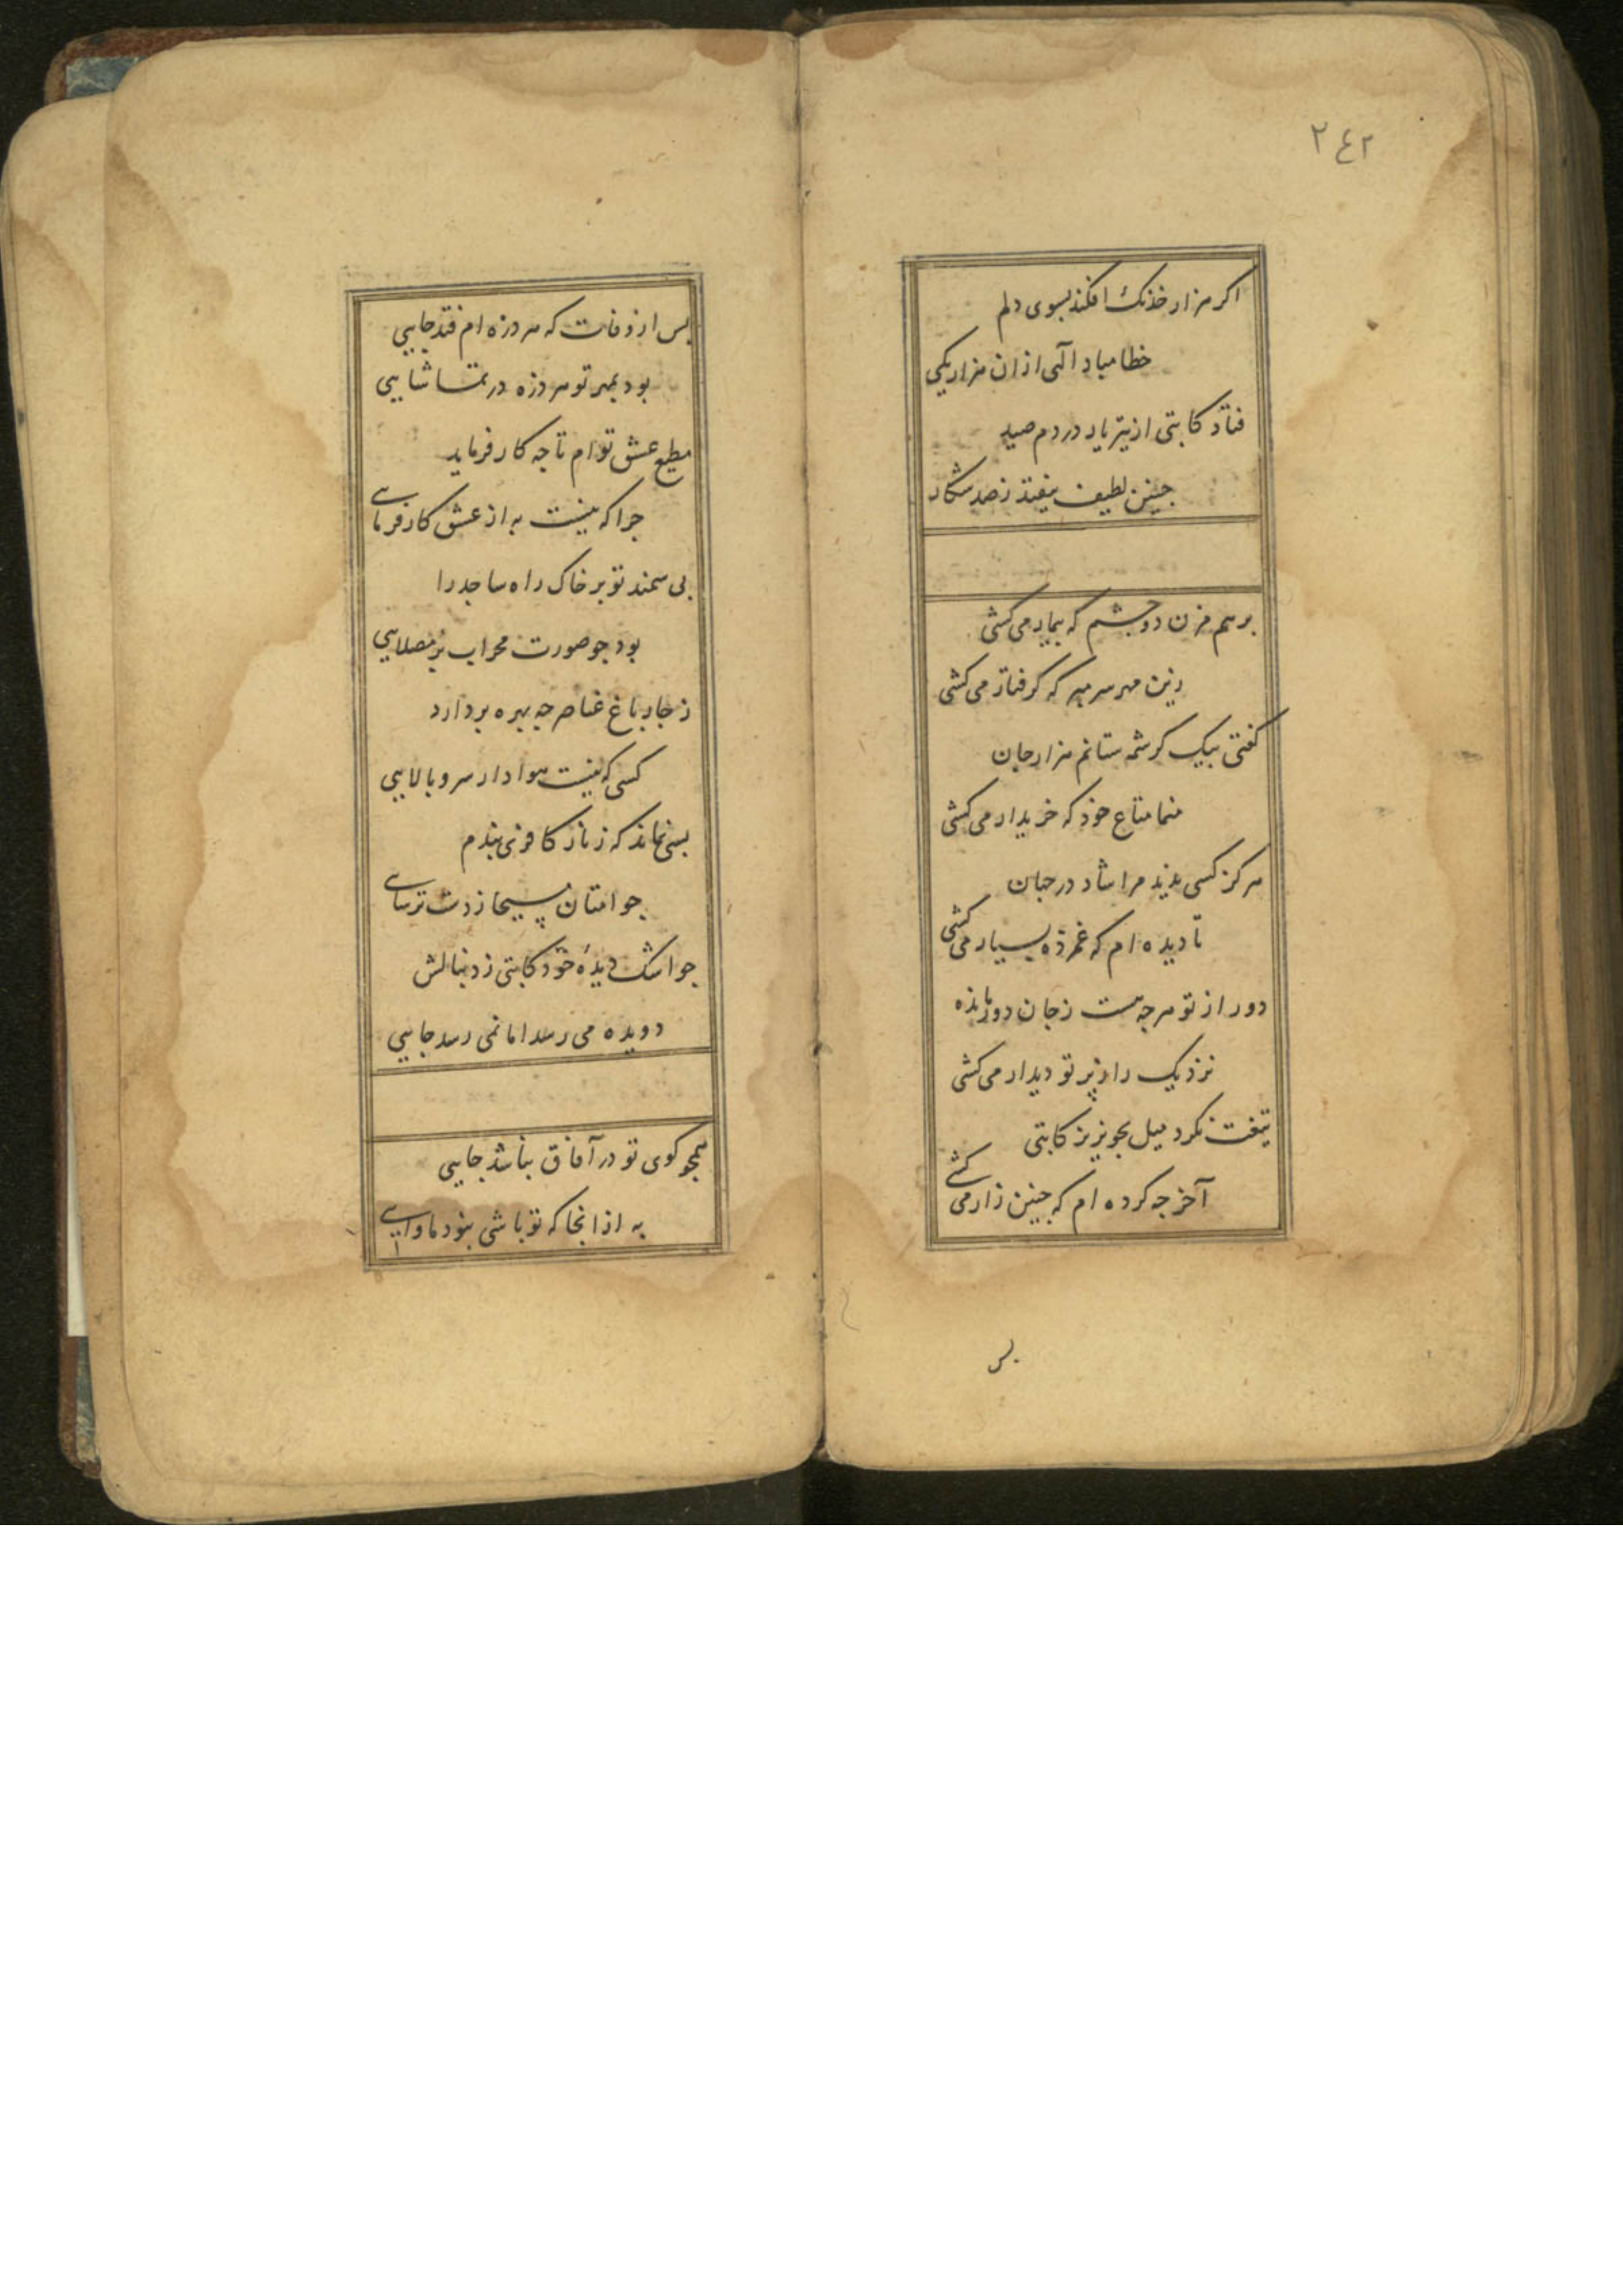 ٢٤٢
اکر هزار خدنک افکند بسوی دلم
خطا مباد الهی ازان هزار یکی
فتاد کاتبی از تیر یار در دم صید
چنین لطیف نیفتد ز صد شکار
برهم مزن دو چشم که بیمار می کشی
وین مهر سر مبر که کرفتار می کشی
کفتی بیک کرشمه ستانم هزار جان
منما متاع خود که خریدار می کشی
هرکز کسی ندید مرا شاد در جهان
تا دیده ام که غمزده بسیار می کشی
دور از تو هرچه هست ز جان دور مانده
نزدیک را ز پرتو دیدار می کشی
تیغت نکرد میل بخونریز کاتبی
آخر چه کرده ام که چنین زار می کشی
بس
بس از وفات که هر ذره ام فتد جایی
بود بمهر تو هر ذره در تماشایی
مطیع عشق توام تا چه کار فرماید
چرا که نیست به از عشق کارفرمایی
بی سمند تو بر خاک راه ساجد را
بود چو صورت محراب بر مصلایی
ز چار باغ عناصر چه بهره بردارد
کسی که نیست هوادار سرو بالایی
بسی نماند که زنار کافری بندم
چو امتان مسیحا ز دست ترسایی
چو اشک دیده خود کاتبی ز دنبالش
دویده می رسد اما نمی رسد جایی
همچو کوی تو در آفاق نباشد جایی
به ازانجا که تو باشی نبود ماوایی